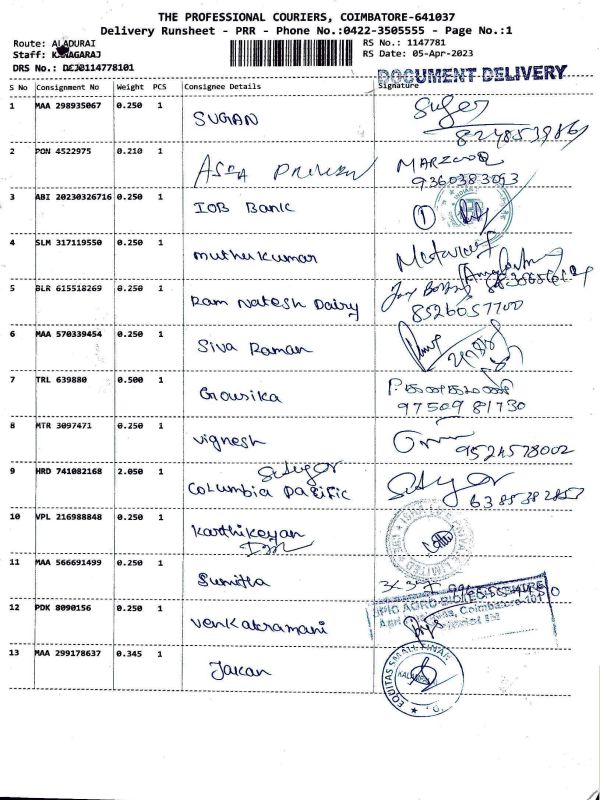 THE PROFESSIONAL COURIERS, COIMBATORE-641037
Delivery Runsheet - PRR - Phone No.:0422-3505555 - Page No.:1
Route: ALADURAI RS No.: 1147781
Staff: KANAGARAJ RS Date: 05-Apr-2023
DRS No.: DCJ0114778101
DOCUMENT DELIVERY
S No Consignment No Weight PCS Consignee Details Signature
1 MAA 298935067 0.250 1 SUGAN
2 PON 4522975 0.210 1 MARZOOQ
9360383093
3 ABI 20230326716 0.250 1 IOB Bank
4 SLM 317119550 0.250 1 muthukumar
5 BLR 615518269 0.250 1 Ram Natesh Dairy
8526057700
6 MAA 570339454 0.250 1 Siva Raman
7 TRL 639880 0.500 1 Gowsika
97509 81730
8 MTR 3097471 0.250 1 vignesh
9524578002
9 HRD 741082168 2.050 1 Columbia Pacific
10 VPL 216988848 0.250 1 Karthikeyan
11 MAA 566691499 0.250 1 Sumitha
12 PDK 8090156 0.250 1 Venkatramani
13 MAA 299178637 0.345 1 Jakan
EQUITAS SMALL FINAN